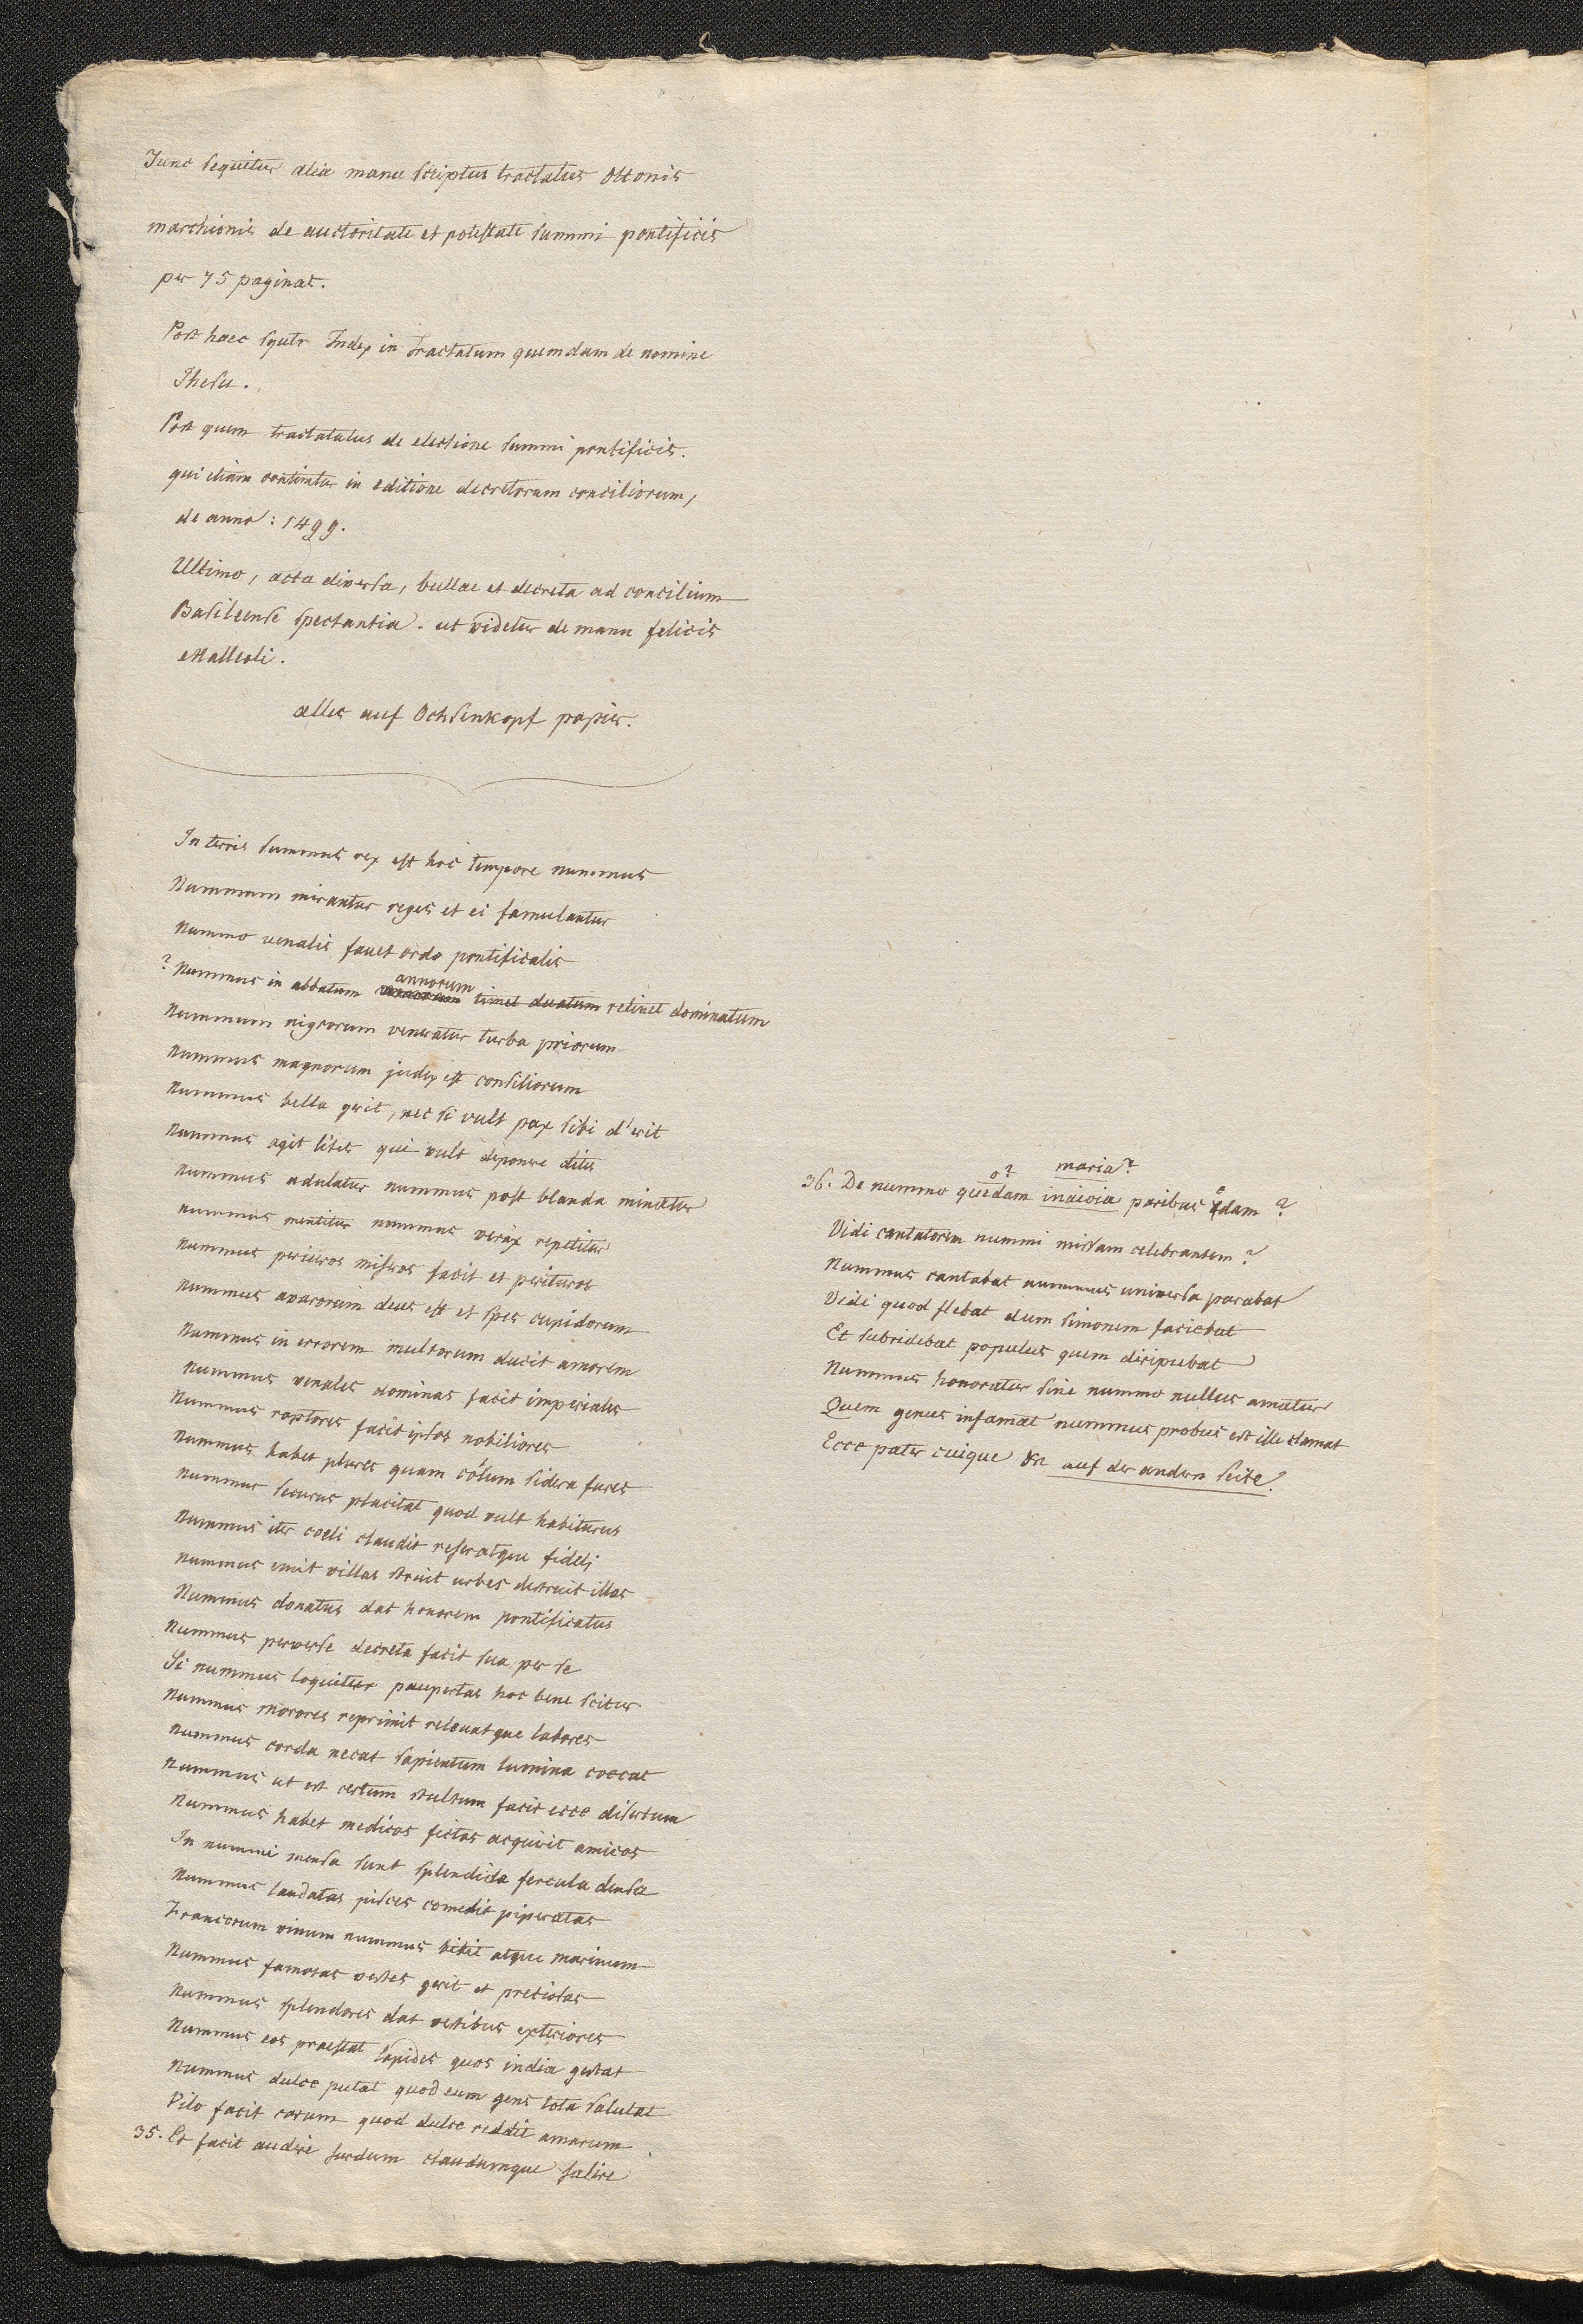 Tunc sequitur alia manu scriptus tractatus Ottonis
marchionis de auctoritate et potestate summi pontificis
per 75 paginas.
Post haec squtr Index in tractatum quemdam de nomine
Jhesu.
Post quem tractatatus de electione summi pontificis.
qui etiam continetur in editione decretorum conciliorum,
de anno: 1499.
Ultimo, acta diversa, bullae et decreta ad concilium
Basileense spectantia. ut videtur de manu felicis
Malleoli.
alles auf Ochsenkopf papier.
In terris summus rex est hoc tempore nummus
Nummum mirantur reges et ei famulantur
Nummo venalis favet ordo pontificalis
annorum
? Nummus in abbatum timet duatum retinet dominatum
Nummum nigrorum veneratur turba priorum
Nummus magnorum judex est consiliorum
Nummus bella gerit, nec si vult pax sibi d'erit
Nummus agit lites qui vult deponere dites
Nummus adulatur nummus post blanda minatur
nummus mentitur nummus verax repetitur
Nummus periuros miseros facit et perituros
Nummus avarorum deus est et spes cupidorum
Nummus in errorem multorum ducit amorem
Nummus venales dominas facit imperiales
Nummus raptores facit ipsos nobiliores
Nummus habet plures quam cölum sidera fures
Nummus securus placitat quod vult habiturus
Nummus iter coeli claudit reseratque fideli
Nummus emit villas struit urbes destruit illas
Nummus donatus dat honorem pontificatus
Nummus perverse decreta facit sua per se
Si nummus loquitur paupertas hoc bene scitur
Nummus merores reprimit relevatque labores
Nummus corda necat sapientum lumina coecat
Nummus ut est certum stultum facit ecce disertum
Nummus habet medicos fictos acquirit amicos
In nummi mensa sunt splendida fercula densa
Nummus laudatas pisces comedit piperatas
Francorum vinum nummus bibit atque marinum
Nummus famosas vestes gerit et preciosas
Nummus splendores dat vestibus exteriores
Nummus eos praestat lapides quos india gestat
Nummus dulce putat quod eum gens tota salutat
Vilo facit carum quod dulce reddit amarum
35. Et facit audire surdum claudumque salire
o? maria?
36. De nummo quedam paribus edam ?
Vidi cantatorem nummi missam celebrantem ?
Nummus cantabat nummus universa parabat
Vidi quod flebat dum simonem faciebat
Et subridebat populus quem diripuebat
Nummus honoratur sine nummo nullus amatur
Quem genus infamat nummus probus est ille clamat
Ecce pater cuique &c auf der andern seite.